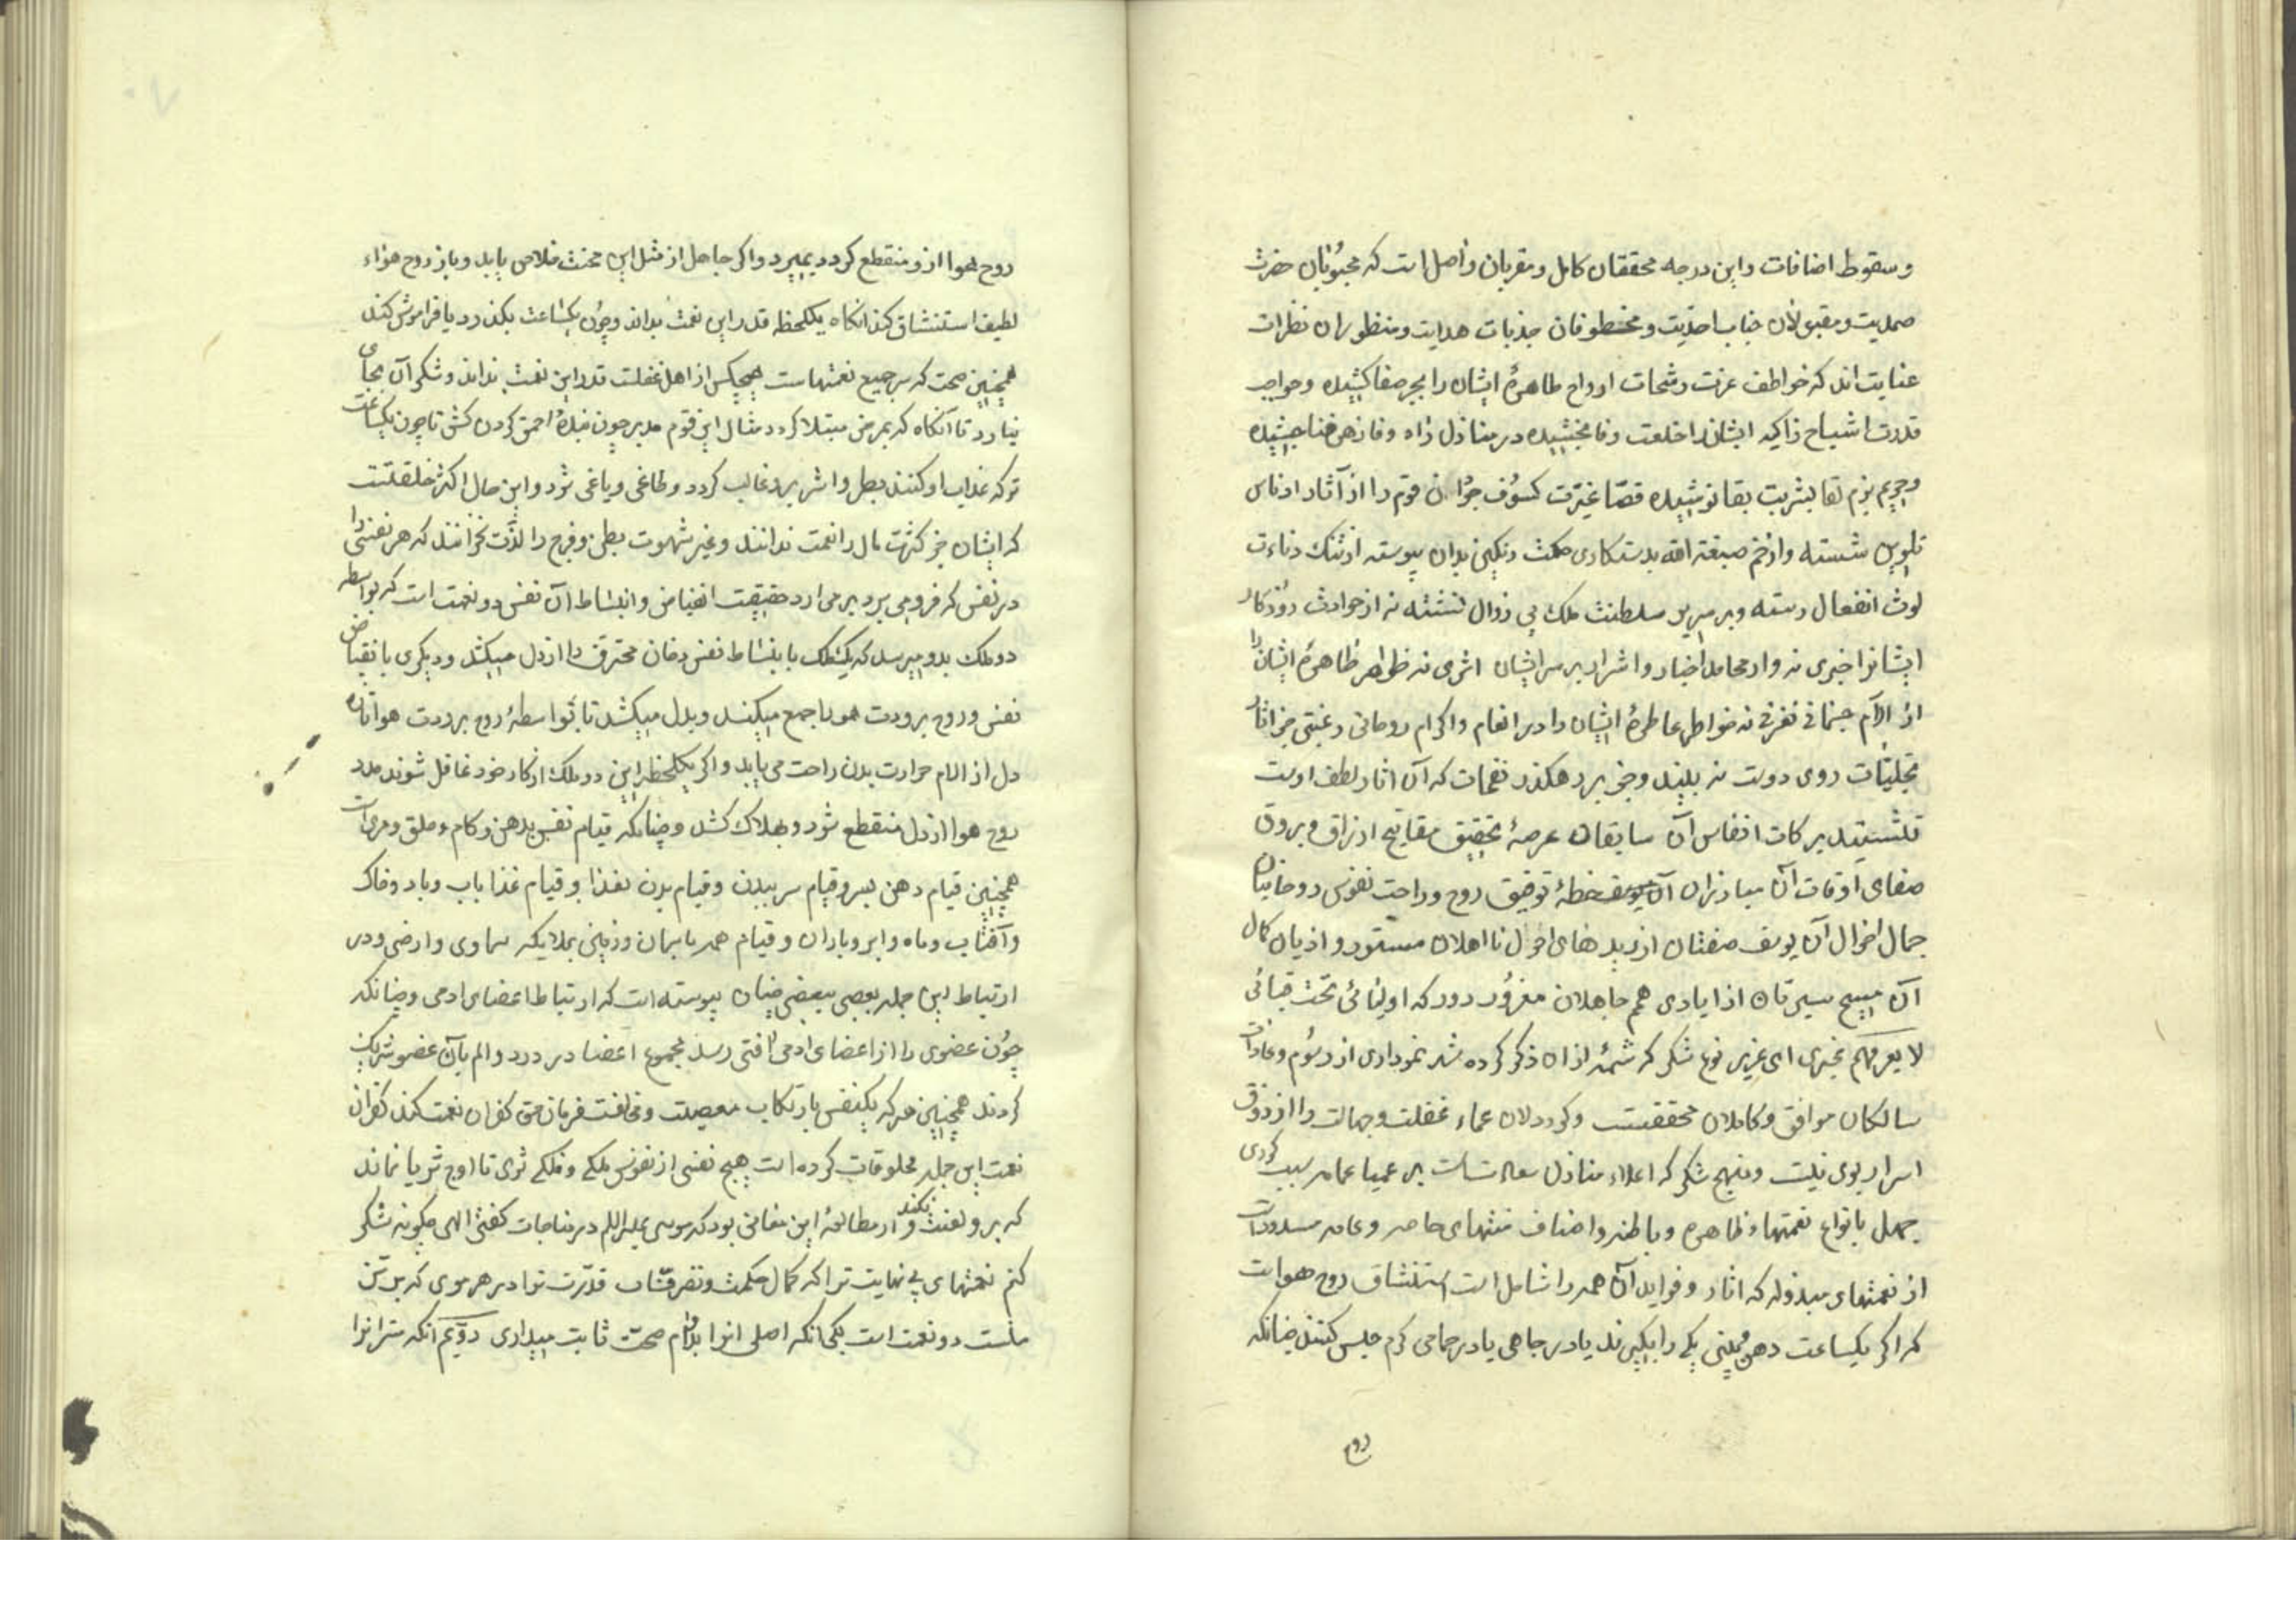 و سقوط اضافات و این درجه محققان کامل و مقربان واصل است که محبوبان حضرت
صمدیت و مقبولان جناب احدیت و مخطوفان جذبات هدایت و منظوران نظرات
عنایت اند که خواطف عزت رشحات ارواح طاهرهٔ ایشان را ببحر صفا کشیده و جواهر
قدرت اشباح زاکیه ایشانرا خلعت وفا بخشیده در منازل راه وفا زهر فنا چشیده
و حریم بزم لقا بشربت بقا نوشیده قصار غیرت کسوف جوان قوم را از آثار ادناس
تلوین شسته و از خم صبغة الله بدستکاری حکمت رنگین بدان پیوسته از ننک دناءت
لوث انفعال رسته و بر سریر سلطنت ملک بی زوال نشسته نه از حوادث روزکار
ایشانرا خبری نه واردمحامد اخیار و اشرار بر سر ایشان اثری نه ظواهر ظاهرهٔ ایشان را
از الآم جسمانی نفرتی نه خواطر عاطرهٔ ایشان را در انعام و اکرام روحانی رغبتی جز اثار
تجلیات روی دوست نه بینند و جز بر رهکذر نفحات که آن اثار لطف اوست
ننشینند برکات انفاس آن سابقان عرصهٔ تحقیق مفاتیح ارزاق و بروق
صفای اوقات آن مبارزان خطهٔ توفیق روح و راحت نفوس روحانیان
جمال احوال آن یوسف صفتان از دیدهای احول نااهلان مستور و اذیال کمال
آن مسیح سیرتان از ایادی همم جاهلان مغرور دور که اولیائی تحت قبائی
لا یعرفهم غیری ای عزیز نوع شکر که شمهٔ ازان ذکر کرده شد نموداری از رسوم و عادات
سالکان موافق و کاملان محققست و کوردلان عماء غفلت و جهالت را از ذوق
اسرار بوی نیست و منهج شکر که اعلاء منازل سعادتست بر عمیا عامه بسبب کوری
جهل بانواع نعمتهاء ظاهره و باطنه و اصناف منتهای خاصه و عامه مسدودست
از نعمتهای مبذوله که اثار و فواید آن همه را شاملست استنشاق روح هواست
که اگر یکساعت دهن و بینی یکی را بگیرند یا در چاهی یا در حمامی کرم حبس کنند چنانکه
روح
روح هوا ازو منقطع کردد بمیرد و اکر جاهل از مثل این محنت خلاص یابد و باز روح هواء
لطیف استنشاق کند انکاه یکلحظه قدر این نعمت بداند و چون یکساعت بکذرد یا فراموش کند
همچنین صحت که سر جمیع نعمتهاست هیچکس از اهل غفلت قدر این نعمت نداند و شکر آن بجای
نیارد تا آنکاه که بمرض مبتلا کردد مثال این قوم مدبر چون بندهٔ احمق کردن کش تا چون یکساعت
ترک عذاب او کنند بطر و اشر برو غالب کردد و طاغی و یاغی شود و این حال اکثر خلقلتست
که ایشان جز کثرت مال را نعمت ندانند و غیر شهوت بطن و فرج را لذت نخوانند که هر نفسی را
در نفس که فرو می برد و بر می ارد حقیقت انقباض و انبساط آن نفس دو نعمت است که بواسطه
دو ملک بدو میرسد که یک ملک بانبساط نفس دخان محترق را از دل میکشد و دیکری بانقباض
نفس و روح برودت هوا را جمع میکند و بدل میکشد تا بواسطهٔ روح برودت هوا تازه
دل از الام حرارت بدن راحت می یابد و اکر یکلحظه این دو ملک از کار خود غافل شوند مدد
روح هوا از دل منقطع شود و بهلاک کشد و چنانکه قیام نفس بدهن و کام و حلق و مری است
همچنین قیام دهن بسر و قیام سر ببدن و قیام بدن بغذا و قیام غذا باب و باد و خاک
و آفتاب و ماه و ابر و باران و قیام همه باسمان و زمین بملایکه سماوی و ارضی و در
ارتباط این جمله بعضی ببعضی چنان پیوسته است که ارتباط اعضای ادمی و چنانکه
چون عضوی را از اعضای ادمی افتی رسد مجموع اعضا در درد و الم بآن عضو شریک
کردند همچنین هر که بکنفس بارتکاب معصیت و مخالفت فرمان حق کفران نعمت کند کفران
نعمت این جمله مخلوقات کرده است هیچ نفسی از نفوس ملکی و فلکی ثری تا اوج ثریا نماند
که برو لعنت نکند و از مطالعهٔ این معانی بود که موسی علیه السلم در مناجات کفت الهی چکونه شکر
کنم نعمتهای بی نهایت ترا که کمال حکمت و تصرفات قدرت ترا در هر موی که بر تن
منست دو نعمت است یکی انکه اصلی انرا بدوام صحت ثابت میداری دویم انکه سر انرا